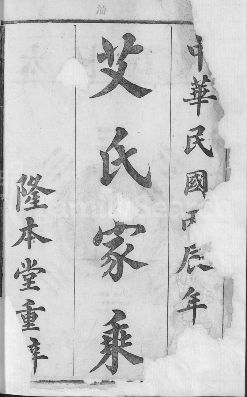 中華民國丙辰年
艾氏家乘
隆本堂重梓